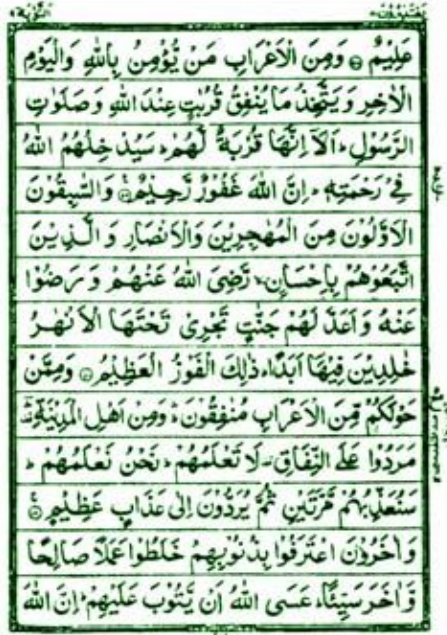 يعتذرون
التوبة
عَلِيْمٌ ۝ وَمِنَ الْاَعْرَابِ مَنْ يُّؤْمِنُ بِاللّٰهِ وَالْيَوْمِ
الْاٰخِرِ وَيَتَّخِذُ مَا يُنْفِقُ قُرُبٰتٍ عِنْدَ اللّٰهِ وَصَلَوٰتِ
الرَّسُوْلِ ؕ اَلَاۤ اِنَّهَا قُرْبَةٌ لَّهُمْ ؕ سَيُدْخِلُهُمُ اللّٰهُ
فِيْ رَحْمَتِهٖ ؕ اِنَّ اللّٰهَ غَفُوْرٌ رَّحِيْمٌ ۝ وَالسّٰبِقُوْنَ
الْاَوَّلُوْنَ مِنَ الْمُهٰجِرِيْنَ وَالْاَنْصَارِ وَالَّذِيْنَ
اتَّبَعُوْهُمْ بِاِحْسَانٍ ۙ رَّضِيَ اللّٰهُ عَنْهُمْ وَرَضُوْا
عَنْهُ وَاَعَدَّ لَهُمْ جَنّٰتٍ تَجْرِيْ تَحْتَهَا الْاَنْهٰرُ
خٰلِدِيْنَ فِيْهَاۤ اَبَدًا ؕ ذٰلِكَ الْفَوْزُ الْعَظِيْمُ ۝ وَمِمَّنْ
حَوْلَكُمْ مِّنَ الْاَعْرَابِ مُنٰفِقُوْنَ ؕ وَمِنْ اَهْلِ الْمَدِيْنَةِ ؔ
مَرَدُوْا عَلَى النِّفَاقِ ۫ لَا تَعْلَمُهُمْ ؕ نَحْنُ نَعْلَمُهُمْ ؕ
سَنُعَذِّبُهُمْ مَّرَّتَيْنِ ثُمَّ يُرَدُّوْنَ اِلٰى عَذَابٍ عَظِيْمٍ ۝
وَاٰخَرُوْنَ اعْتَرَفُوْا بِذُنُوْبِهِمْ خَلَطُوْا عَمَلًا صَالِحًا
وَّاٰخَرَ سَيِّئًا ؕ عَسَى اللّٰهُ اَنْ يَّتُوْبَ عَلَيْهِمْ ؕ اِنَّ اللّٰهَ